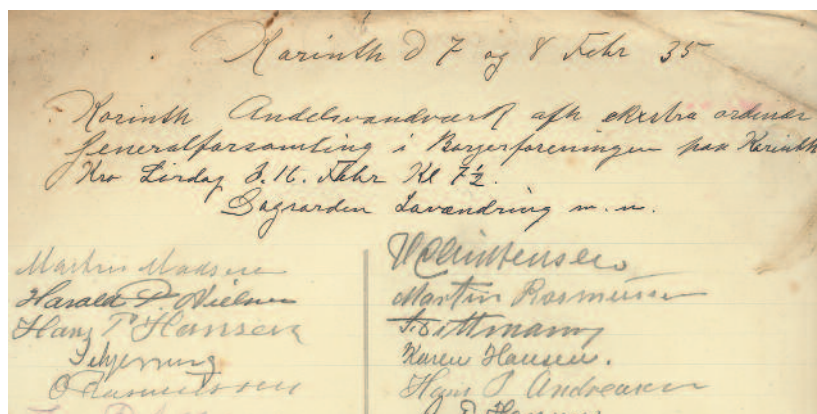 Korinth d 7 og 8 Febr 35
Korinth Andelsvandværk afh ekstra ordinær
Generalforsamling i Borgerforeningen paa Korinth
Kro Lördag d. 16. Febr Kl 7½.
Dagsorden Lovændring m. m.
Martin Madsen
Harald P Nielsen
Hans P Hansen
Schjerning
O Rasmussen
Christensen
Martin Rasmussen
Dittmann
Karen Hansen.
Hans P Andreasen